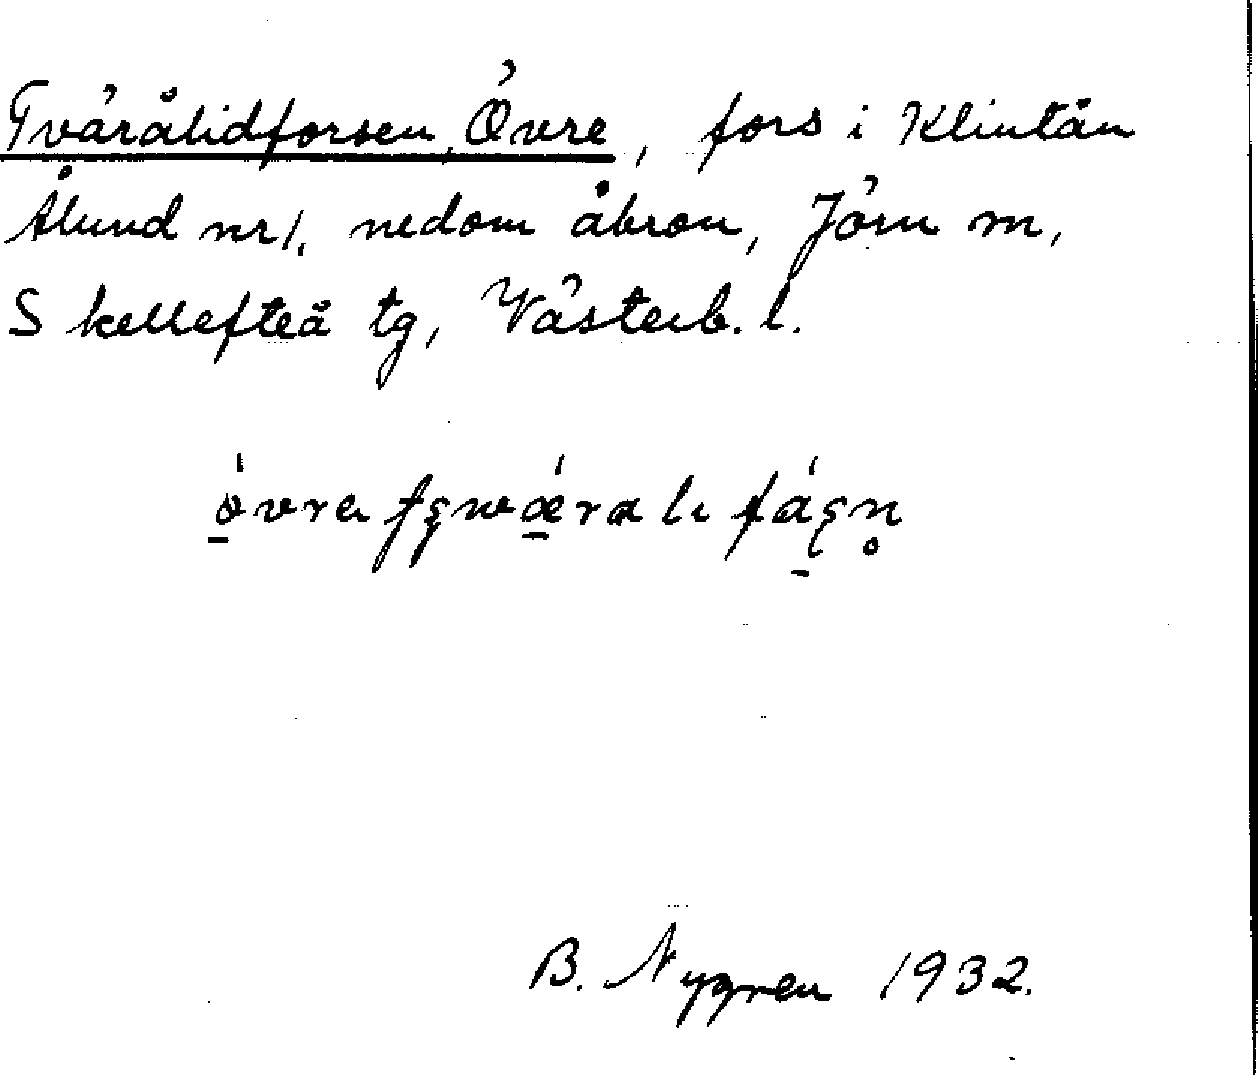 Tvärålidforsen, Övre, fors i Klintån
Ålund nr 1, nedom åbron, Jörn m,
Skellefteå tg, Västerb. l.
B. Nygren 1932.